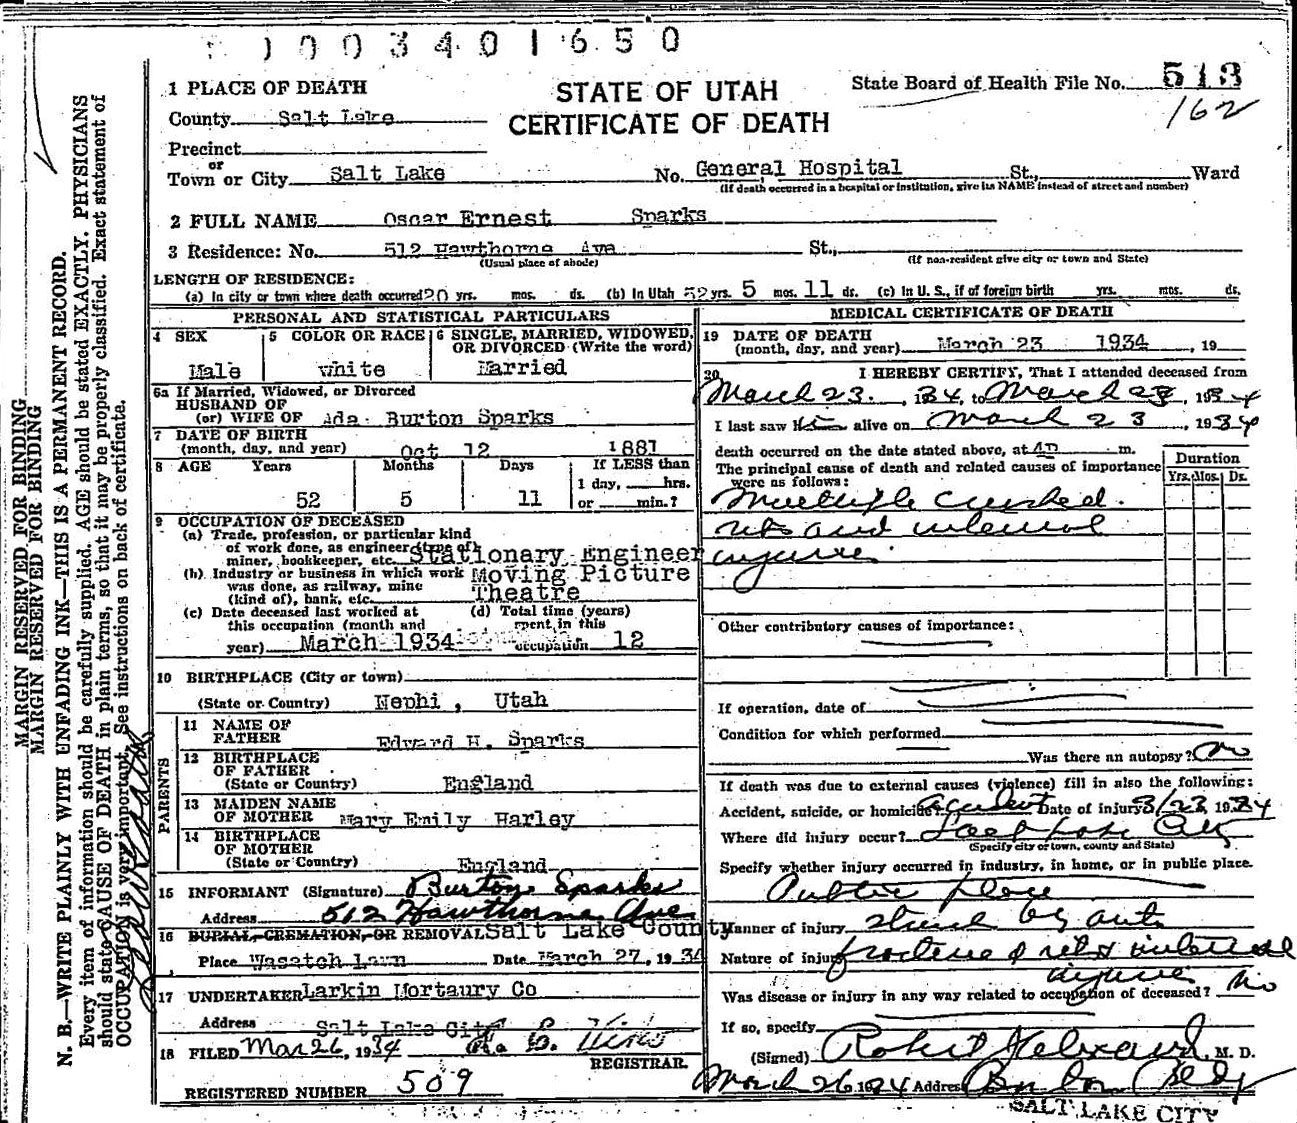 1003401650
1 PLACE OF DEATH
STATE OF UTAH
CERTIFICATE OF DEATH
State Board of Health File No. 513
162
County Salt Lake
Precinct
or
Town or City Salt Lake No. General Hospital St., Ward
(If death occurred in a hospital or institution, give its NAME instead of street and number)
2 FULL NAME Oscar Ernest Sparks
3 Residence: No. 512 Hawthorne Ave St.,
(Usual place of abode) (If non-resident give city or town and State)
LENGTH OF RESIDENCE:
(a) In city or town where death occurred 20 yrs. mos. ds. (b) In Utah 52 yrs. 5 mos. 11 ds. (c) In U. S., if of foreign birth yrs. mos. ds.
PERSONAL AND STATISTICAL PARTICULARS
4 SEX 5 COLOR OR RACE 6 SINGLE, MARRIED, WIDOWED, OR DIVORCED (Write the word)
Male White Married
6a If Married, Widowed, or Divorced
HUSBAND OF
(or) WIFE OF Ada Burton Sparks
7 DATE OF BIRTH
(month, day, and year) Oct 12 1881
8 AGE Years Months Days If LESS than
1 day, hrs.
52 5 11 or min.?
9 OCCUPATION OF DECEASED
(a) Trade, profession, or particular kind
of work done, as engineer (type of)
miner, bookkeeper, etc. Stationary Engineer
(b) Industry or business in which work Moving Picture
was done, as railway, mine
(kind of), bank, etc. Theatre
(c) Date deceased last worked at (d) Total time (years)
this occupation (month and spent in this
year) March 1934 occupation 12
10 BIRTHPLACE (City or town)
(State or Country) Nephi, Utah
PARENTS
11 NAME OF
FATHER Edward H. Sparks
12 BIRTHPLACE
OF FATHER
(State or Country) England
13 MAIDEN NAME
OF MOTHER Mary Emily Harley
14 BIRTHPLACE
OF MOTHER
(State or Country) England
15 INFORMANT (Signature) Burton Sparks
Address 512 Hawthorne Ave
16 BURIAL, CREMATION, OR REMOVAL Salt Lake County
Place Wasatch Lawn Date March 27, 1934
17 UNDERTAKER Larkin Mortaury Co
Address Salt Lake City
18 FILED Mar 26, 1934
REGISTRAR
REGISTERED NUMBER 509
MEDICAL CERTIFICATE OF DEATH
19 DATE OF DEATH
(month, day, and year) March 23 1934, 19
20 I HEREBY CERTIFY, That I attended deceased from
March 23, 1934, to March 23, 1934
I last saw him alive on March 23, 1934
death occurred on the date stated above, at m.
The principal cause of death and related causes of importance
were as follows:
Duration
Yrs. Mos. Ds.
Multiple crushed
ribs and internal
injuries
Other contributory causes of importance:
If operation, date of
Condition for which performed
Was there an autopsy? No
If death was due to external causes (violence) fill in also the following:
Accident, suicide, or homicide? Accident Date of injury 3/23 1934
Where did injury occur? Salt Lake City
(Specify city or town, county and State)
Specify whether injury occurred in industry, in home, or in public place.
Public place
Manner of injury struck by auto
Nature of injury fracture of ribs & internal
injuries
Was disease or injury in any way related to occupation of deceased? No
If so, specify
(Signed) Robert M. D.
March 26 1934 Address
SALT LAKE CITY
MARGIN RESERVED FOR BINDING
MARGIN RESERVED FOR BINDING
N. B.—WRITE PLAINLY WITH UNFADING INK—THIS IS A PERMANENT RECORD.
Every item of information should be carefully supplied. AGE should be stated EXACTLY. PHYSICIANS
should state CAUSE OF DEATH in plain terms, so that it may be properly classified. Exact statement of
OCCUPATION is very important. See instructions on back of certificate.